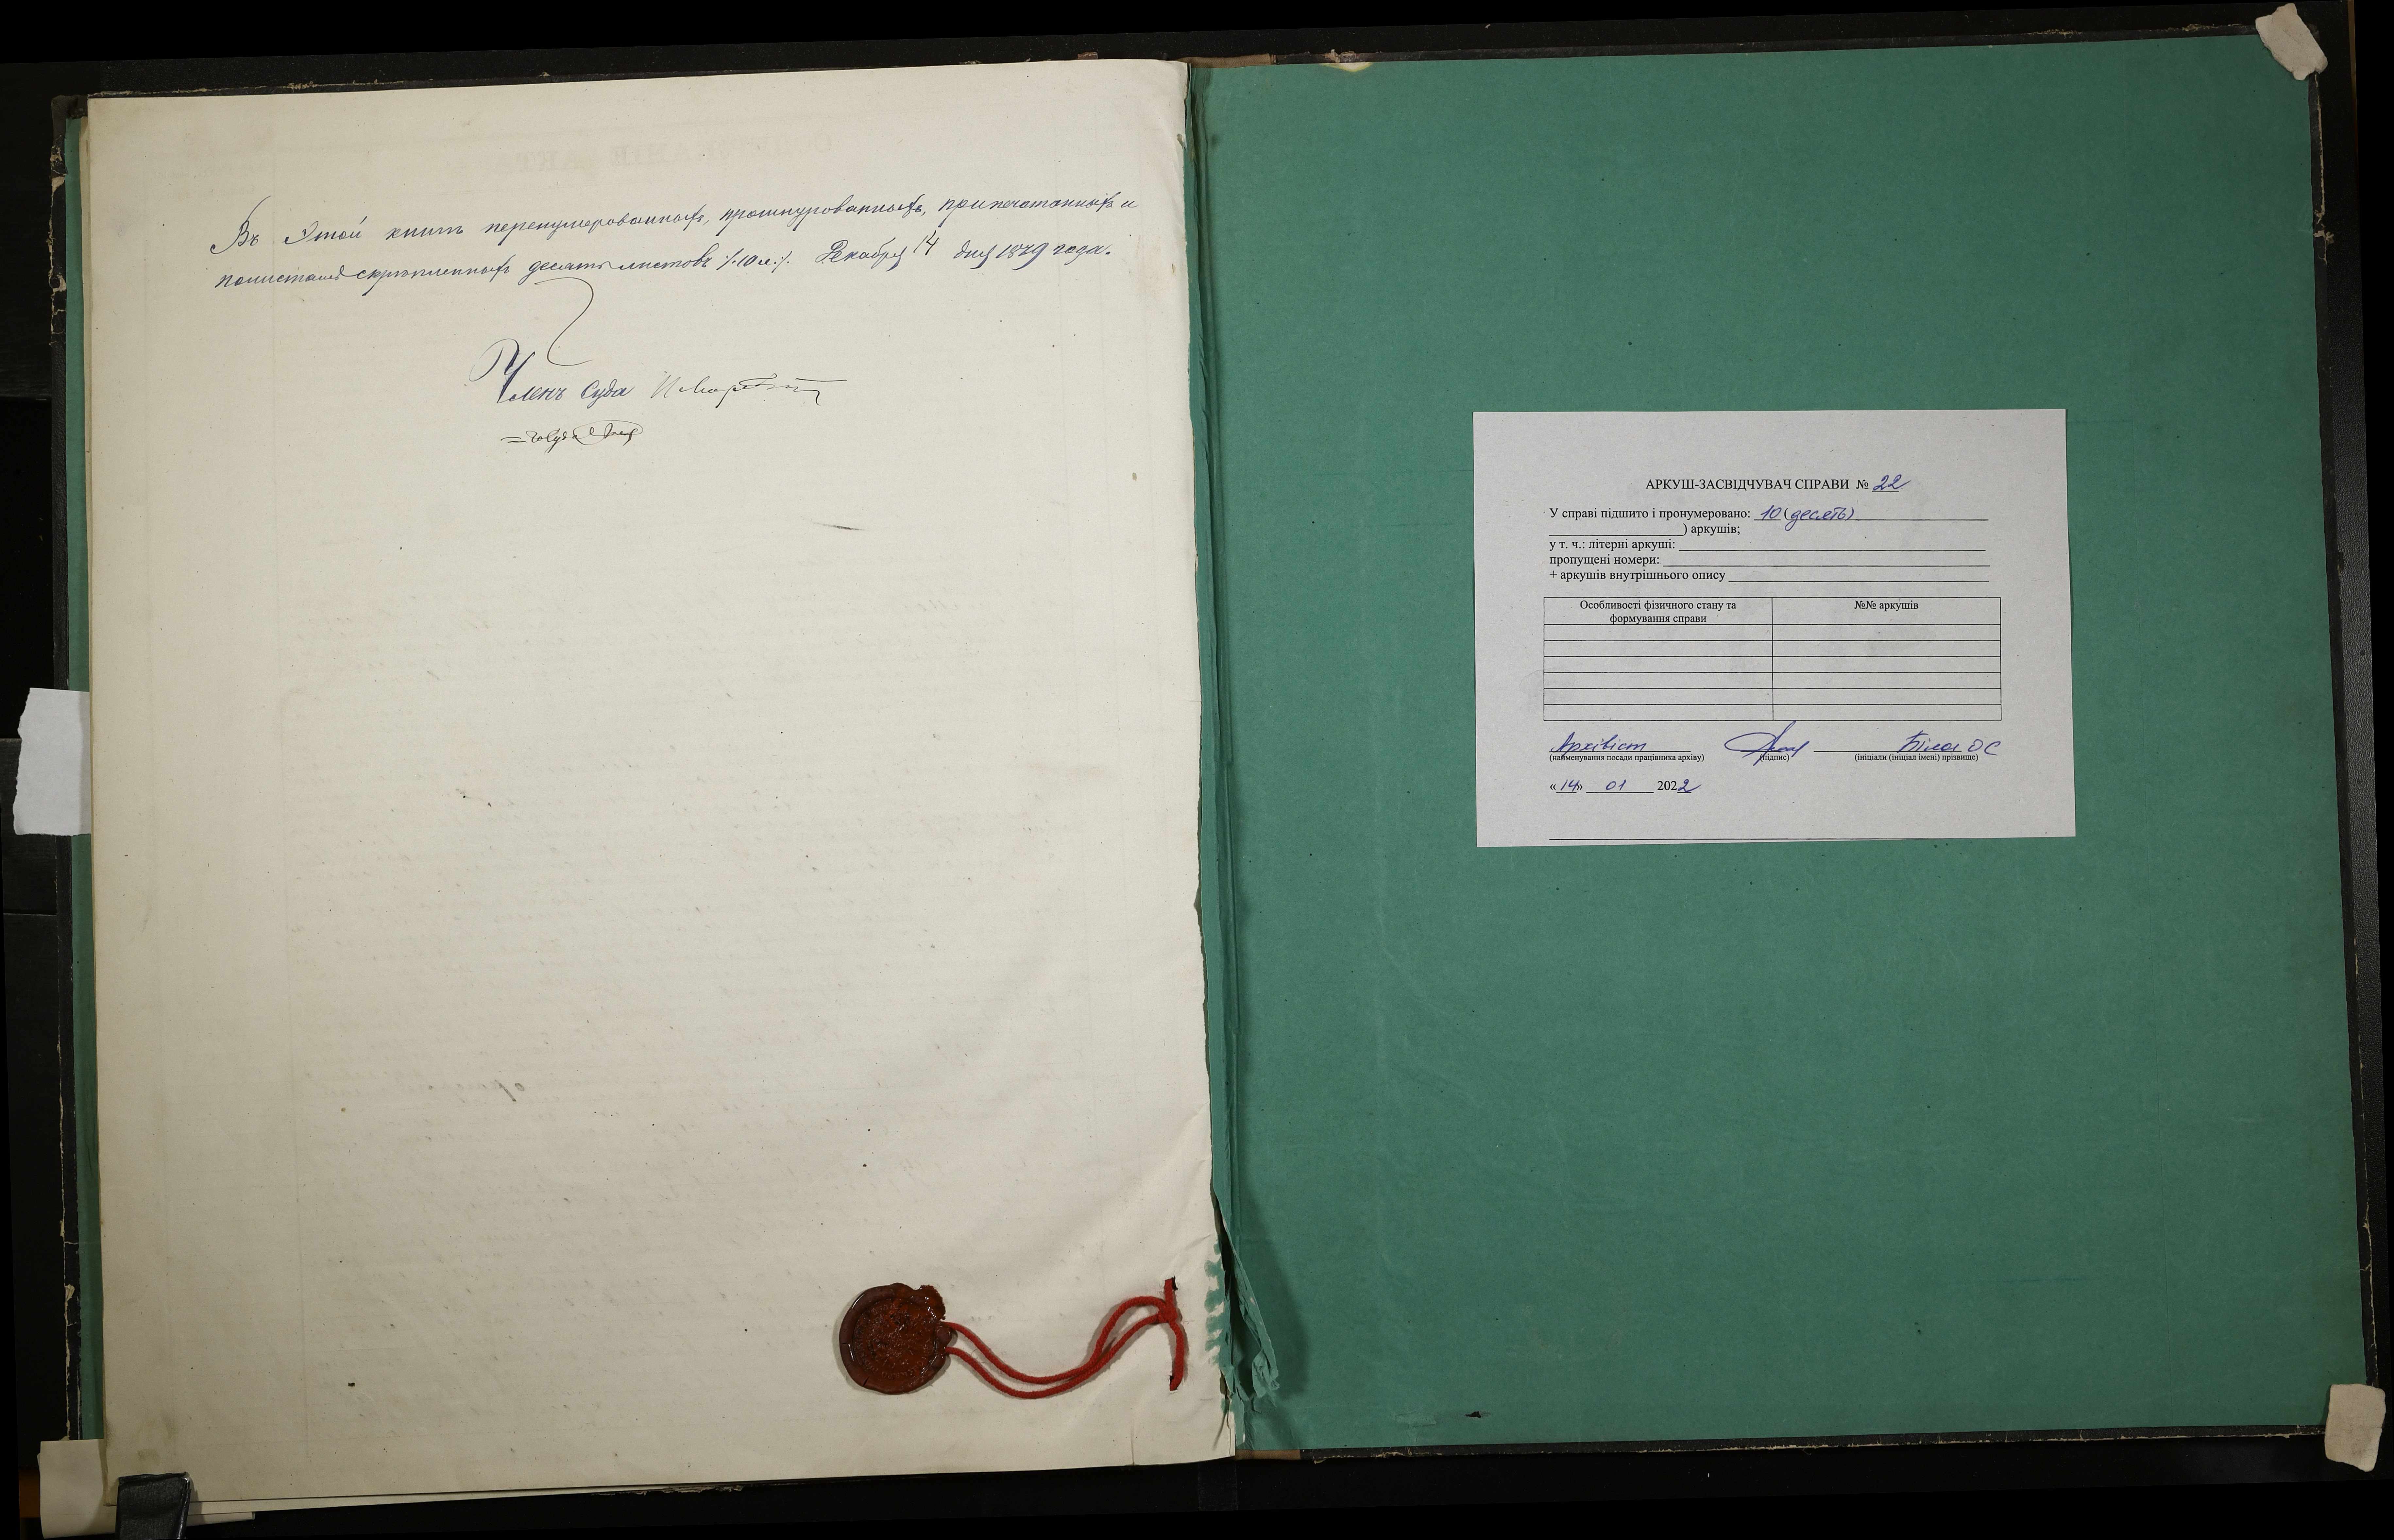 Въ этой книгѣ перенумерованныхъ, прошнурованныхъ, припечатанныхъ и
полистамъ скрѣпленныхъ десять листовъ ./.10 л./. Декабря 14 дня 1879 года.
Членъ Суда
АРКУШ-ЗАСВІДЧУВАЧ СПРАВИ № 22
У справі підшито і пронумеровано: 10 (десять)
) аркушів;
у т. ч.: літерні аркуші:
пропущені номери:
+ аркушів внутрішнього опису
Особливості фізичного стану та формування справи
№№ аркушів
Архівіст Білан О С
(найменування посади працівника архіву) (підпис) (ініціали (ініціал імені) прізвище)
«14» 01 2022